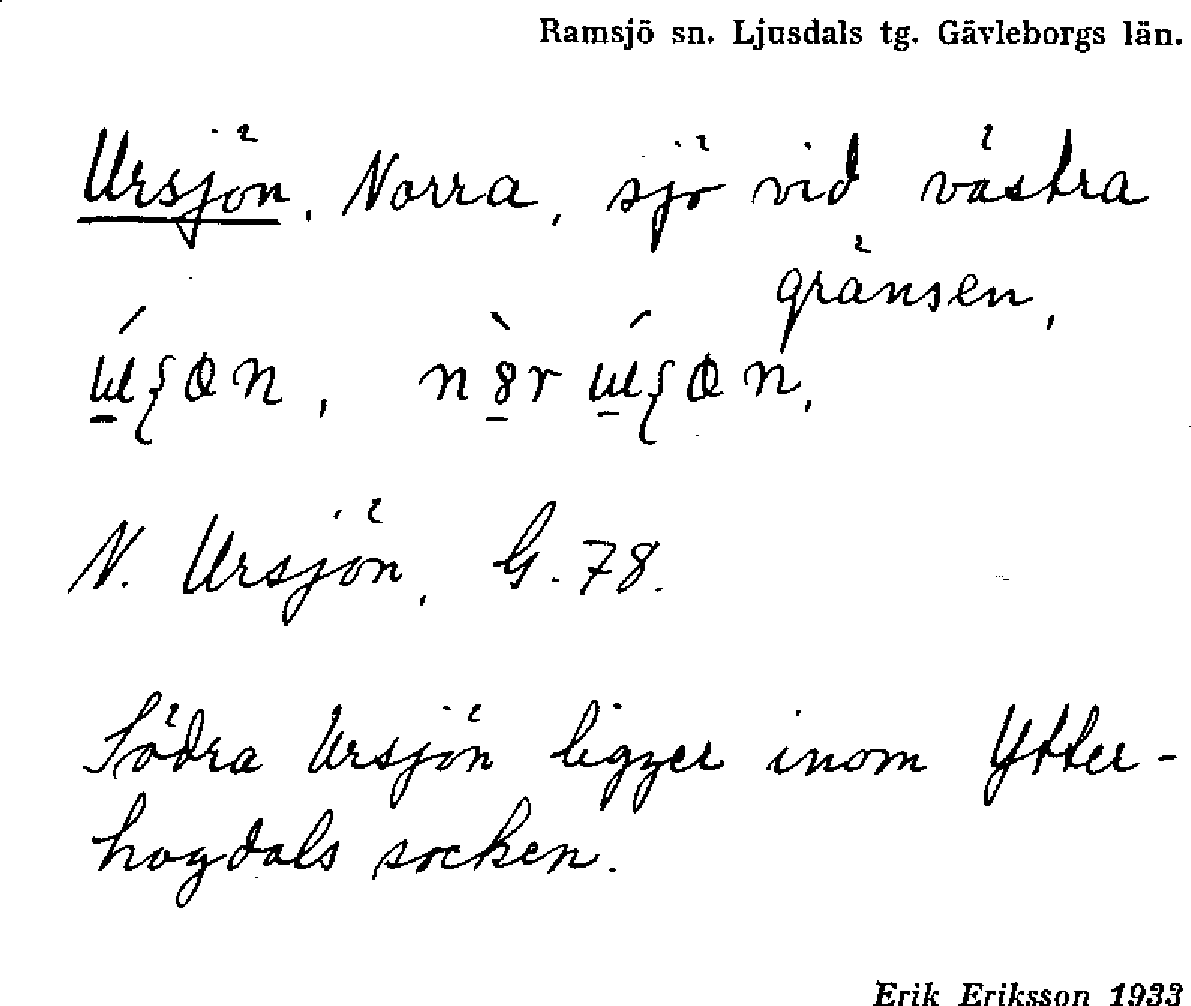 Ramsjö sn. Ljusdals tg. Gävleborgs län.
Ursjön, Norra, sjö vid västra
gränsen,
N. Ursjön, G. 78.
Södra Ursjön ligger inom Ytter-
hogdals socken.
Erik Eriksson 1933